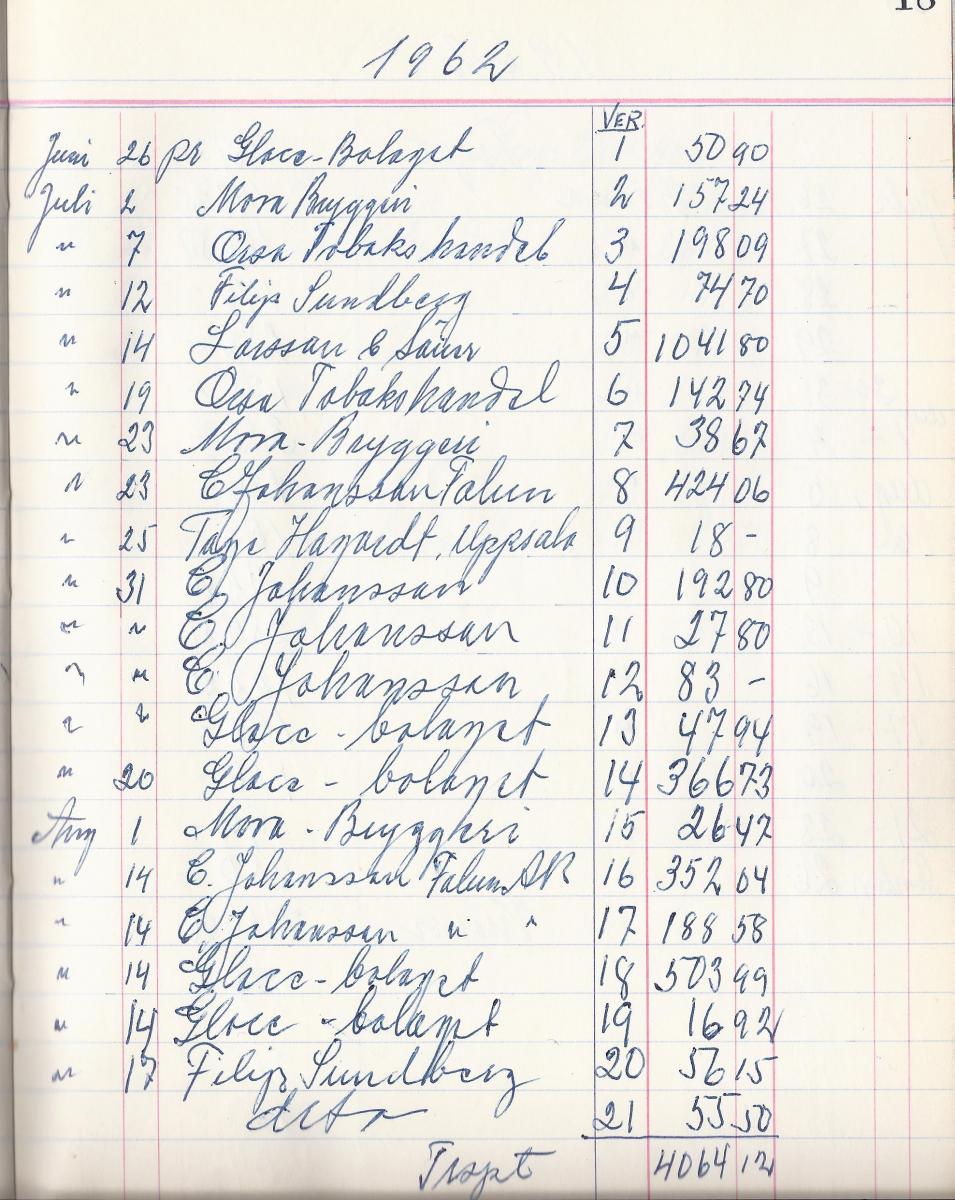 18
1962
VER.
Juni 26 pr Glace-Bolaget 1 50 90
Juli 2 Mora Bryggeri 2 157 24
" 7 Orsa Tobakshandel 3 198 09
" 12 Filip Sundberg 4 74 70
" 14 Larsson & Söner 5 1041 80
" 19 Orsa Tobakshandel 6 142 74
" 23 Mora-Bryggeri 7 38 67
" 23 E Johansson Falun 8 424 06
" 25 Tage Uppsala 9 18 -
" 31 E. Johansson 10 192 80
" " E. Johansson 11 27 80
" " E. Johansson 12 83 -
" " Glace-bolaget 13 47 94
" 20 Glace-bolaget 14 366 73
Aug 1 Mora-Bryggeri 15 26 47
" 14 E. Johansson Falun AB 16 352 04
" 14 E Johansson " " 17 188 58
" 14 Glace-bolaget 18 503 99
" 14 Glace-bolaget 19 16 92
" 17 Filip Sundberg 20 56 15
dito 21 55 50
Trspt 4064 12